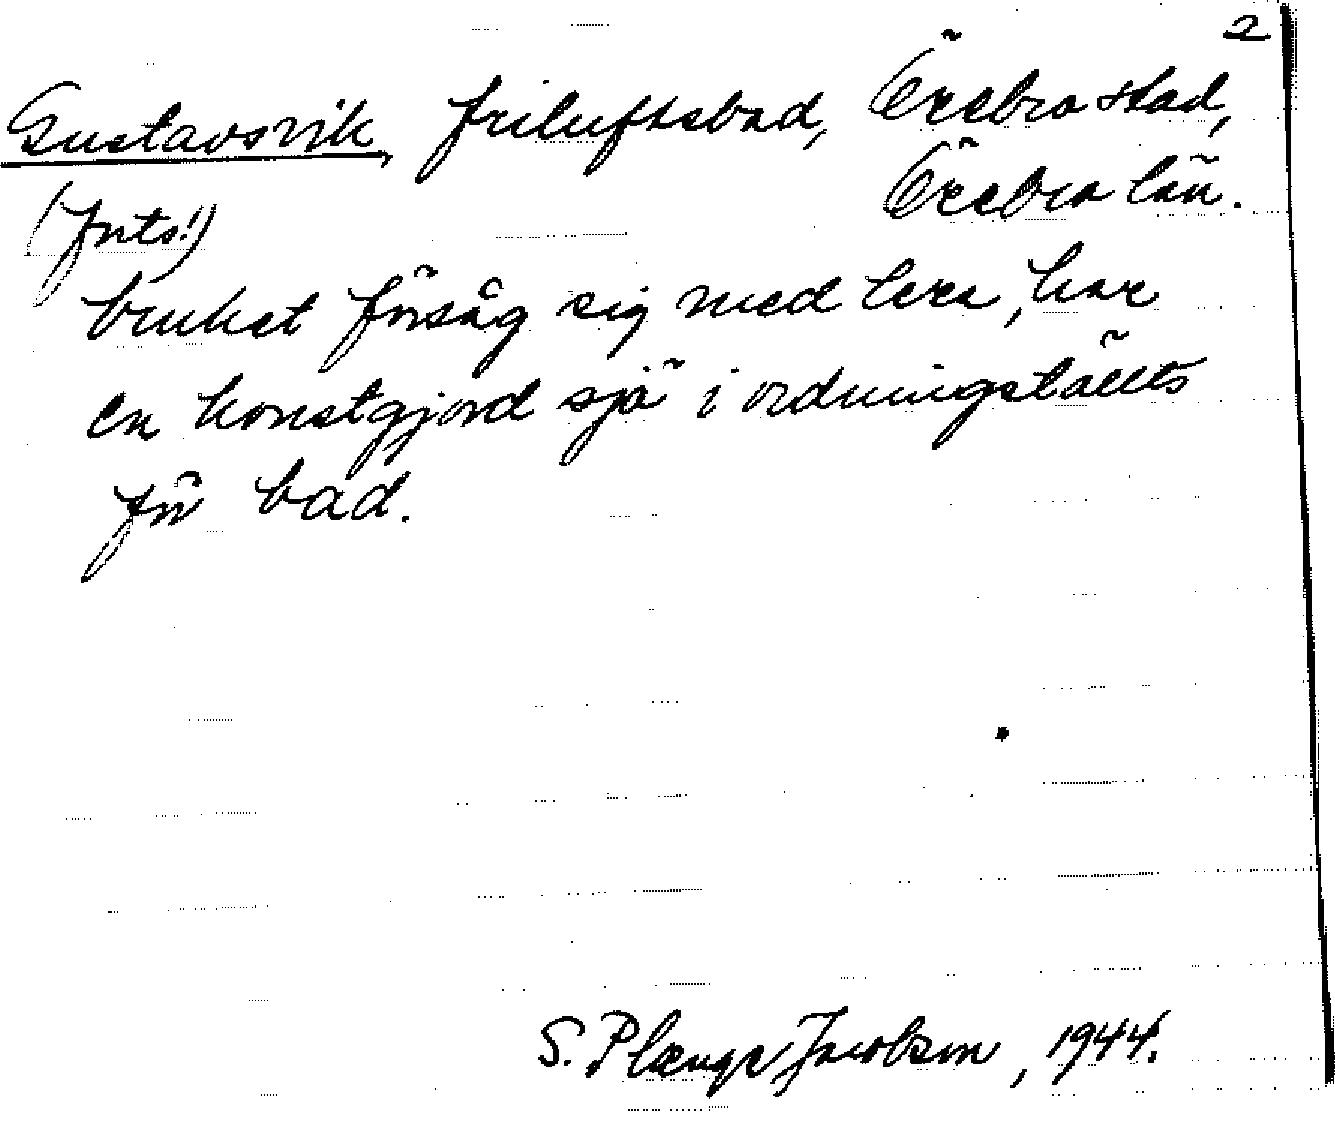 2
Gustavsvik, friluftsbad, Örebro stad,
Örebro län.
(forts!)
bruket försåg sig med lera, har
en konstgjord sjö i ordningställts
för bad.
S. Plænge Jacobson, 1944.